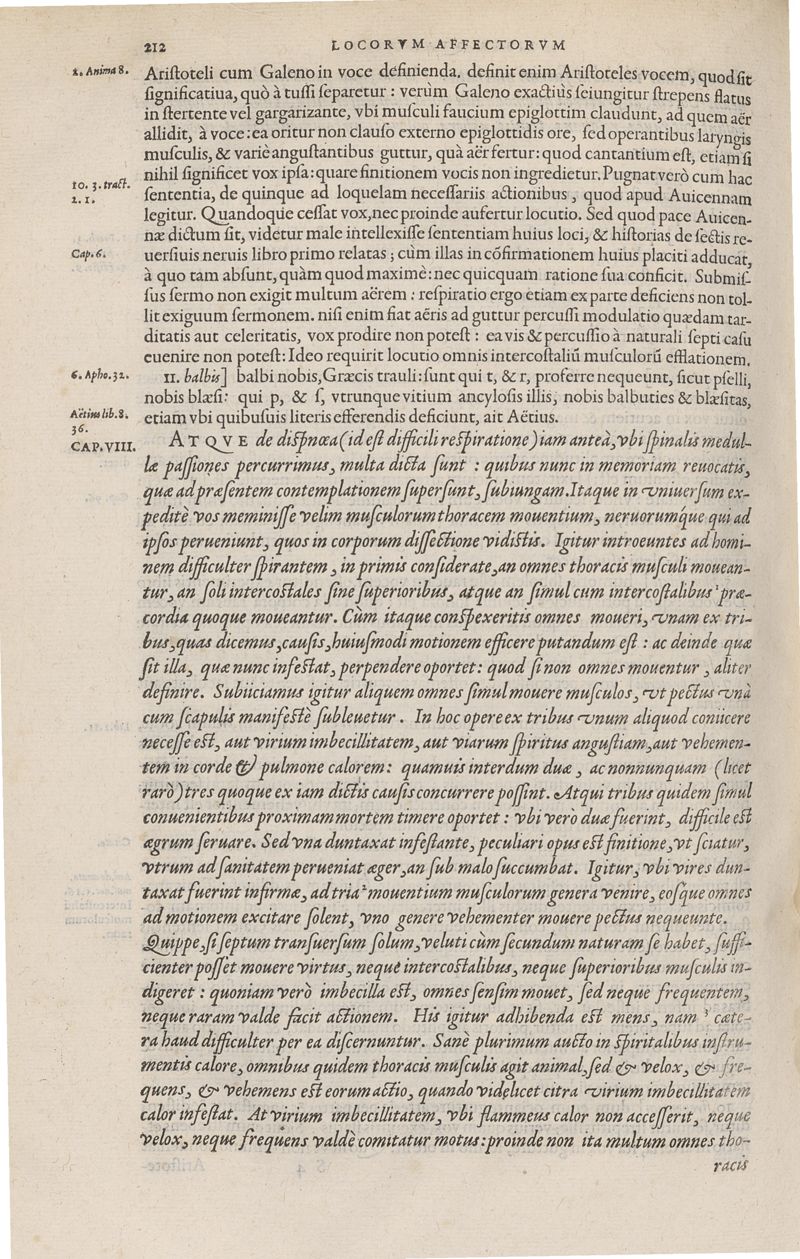 212 LOCORVM AFFECTORVM
2. Anima 8. Ariſtoteli cum Galeno in voce definienda. definit enim Ariſtoteles vocem, quod ſit
ſignificatiua, quò à tuſſi ſeparetur : verùm Galeno exactiùs ſeiungitur ſtrepens flatus
in ſtertente vel gargarizante, vbi muſculi faucium epiglottim claudunt, ad quem aër
allidit, à voce: ea oritur non clauſo externo epiglottidis ore, ſed operantibus laryngis
muſculis, & variè anguſtantibus guttur, quà aër fertur: quod cantantium eſt, etiam ſi
nihil ſignificet vox ipſa: quare finitionem vocis non ingredietur. Pugnat verò cum hac
10. 3. tract. 2. 1. ſententia, de quinque ad loquelam neceſſariis actionibus, quod apud Auicennam
legitur. Quandoque ceſſat vox, nec proinde aufertur locutio. Sed quod pace Auicen-
næ dictum ſit, videtur male intellexiſſe ſententiam huius loci, & hiſtorias de ſectis re-
Cap. 6. uerſiuis neruis libro primo relatas; cùm illas in cõfirmationem huius placiti adducat,
à quo tam abſunt, quàm quod maximè: nec quicquam ratione ſua conficit. Submiſ-
ſus ſermo non exigit multum aërem : reſpiratio ergo etiam ex parte deficiens non tol-
lit exiguum ſermonem. niſi enim fiat aëris ad guttur percuſſi modulatio quædam tar-
ditatis aut celeritatis, vox prodire non poteſt : ea vis & percuſſio à naturali ſepti caſu
euenire non poteſt: Ideo requirit locutio omnis intercoſtaliũ muſculorũ efflationem.
6. Apho. 32. 11. balbis] balbi nobis, Græcis trauli: ſunt qui t, & r, proferre nequeunt, ſicut pſelli,
nobis blæſi: qui p, & ſ, vtrunque vitium ancyloſis illis, nobis balbuties & blæſitas,
Aëtius lib. 8. 36. etiam vbi quibuſuis literis efferendis deficiunt, ait Aëtius.
CAP. VIII. ATQVE de diſpnœa (id eſt difficili reſpiratione) iam anteà, vbi ſpinalis medul-
læ paſſiones percurrimus, multa dicta ſunt : quibus nunc in memoriam reuocatis,
quæ ad præſentem contemplationem ſuperſunt, ſubiungam. Itaque in vniuerſum ex-
peditè vos meminiſſe velim muſculorum thoracem mouentium, neruorumq́ue qui ad
ipſos perueniunt, quos in corporum diſſectione vidiſtis. Igitur introeuntes ad homi-
nem difficulter ſpirantem, in primis conſiderate, an omnes thoracis muſculi mouean-
tur, an ſoli intercoſtales ſine ſuperioribus, atque an ſimul cum intercoſtalibus ¹præ-
cordia quoque moueantur. Cùm itaque conſpexeritis omnes moueri, vnam ex tri-
bus, quas dicemus, cauſis, huiuſmodi motionem efficere putandum eſt : ac deinde quæ
ſit illa, quæ nunc infeſtat, perpendere oportet: quod ſi non omnes mouentur, aliter
definire. Subiiciamus igitur aliquem omnes ſimul mouere muſculos, vt pectus vnà
cum ſcapulis manifeſtè ſubleuetur. In hoc opere ex tribus vnum aliquod coniicere
neceſſe eſt, aut virium imbecillitatem, aut viarum ſpiritus anguſtiam, aut vehemen-
tem in corde & pulmone calorem: quamuis interdum duæ, ac nonnunquam (licet
rarò) tres quoque ex iam dictis cauſis concurrere poſſint. Atqui tribus quidem ſimul
conuenientibus proximam mortem timere oportet : vbi verò duæ fuerint, difficile eſt
ægrum ſeruare. Sed vna duntaxat infeſtante, peculiari opus eſt finitione, vt ſciatur,
vtrum ad ſanitatem perueniat æger, an ſub malo ſuccumbat. Igitur, vbi vires dun-
taxat fuerint infirmæ, ad tria ²mouentium muſculorum genera venire, eoſque omnes
ad motionem excitare ſolent, vno genere vehementer mouere pectus nequeunte.
Quippe, ſi ſeptum tranſuerſum ſolum, veluti cùm ſecundum naturam ſe habet, ſuffi-
cienter poſſet mouere virtus, neque intercoſtalibus, neque ſuperioribus muſculis in-
digeret : quoniam verò imbecilla eſt, omnes ſenſim mouet, ſed neque frequentem,
neque raram valde facit actionem. His igitur adhibenda eſt mens, nam ³cæte-
ra haud difficulter per ea diſcernuntur. Sanè plurimum aucto in ſpiritalibus inſtru-
mentis calore, omnibus quidem thoracis muſculis agit animal, ſed & velox, & fre-
quens, & vehemens eſt eorum actio, quando videlicet citra virium imbecillitatem
calor infeſtat. At virium imbecillitatem, vbi flammeus calor non acceſſerit, neque
velox, neque frequens valdè comitatur motus: proinde non ita multum omnes tho-
racis